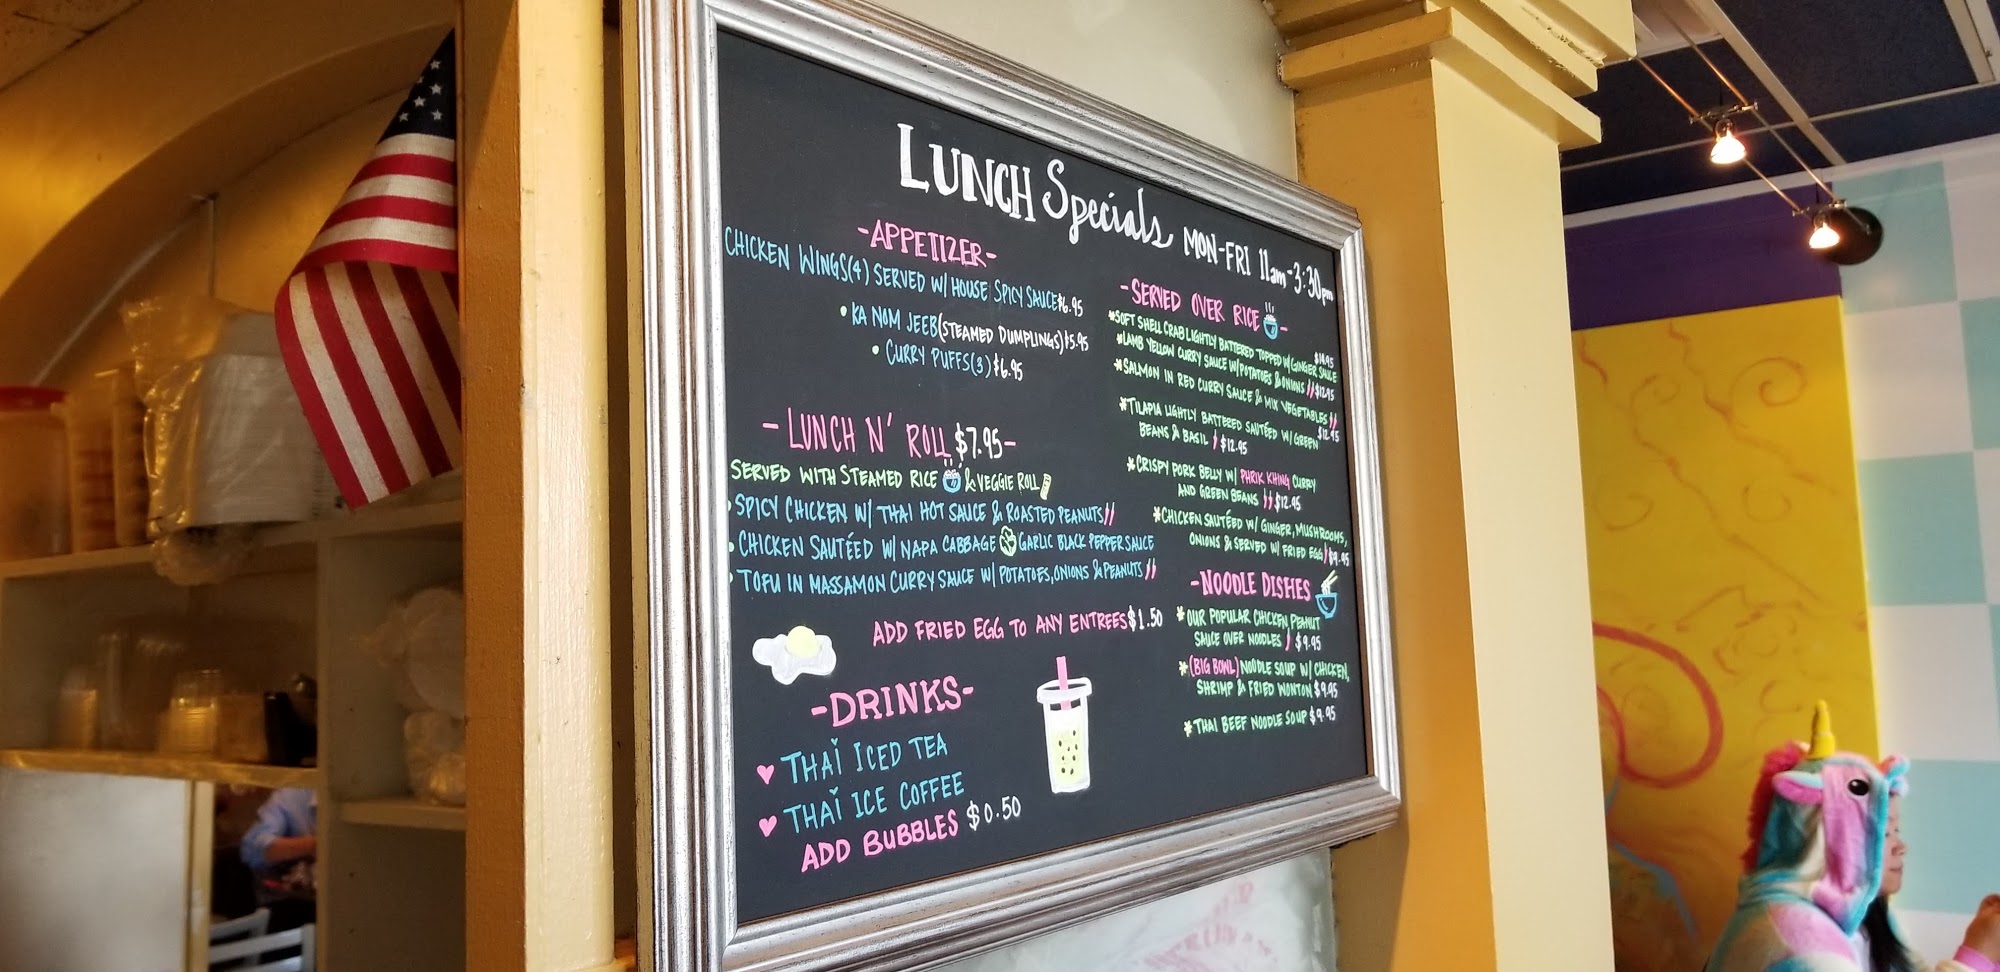 LUNCH Specials MON-FRI 11am-3:30pm
-APPETIZER-
CHICKEN WINGS(4) SERVED W/ HOUSE SPICY SAUCE $6.95
• KA NOM JEEB (STEAMED DUMPLINGS) $5.95
• CURRY PUFFS(3) $6.95
- LUNCH N' ROLL $7.95-
SERVED WITH STEAMED RICE & VEGGIE ROLL
• SPICY CHICKEN W/ THAI HOT SAUCE & ROASTED PEANUTS
• CHICKEN SAUTÉED W/ NAPA CABBAGE GARLIC BLACK PEPPER SAUCE
• TOFU IN MASSAMON CURRY SAUCE W/ POTATOES, ONIONS & PEANUTS
ADD FRIED EGG TO ANY ENTREES $1.50
-DRINKS-
♥ THAI ICED TEA
♥ THAI ICE COFFEE
ADD BUBBLES $0.50
-SERVED OVER RICE-
*SOFT SHELL CRAB LIGHTLY BATTERED TOPPED W/ GINGER SAUCE $14.95
*LAMB YELLOW CURRY SAUCE W/ POTATOES & ONIONS $12.95
*SALMON IN RED CURRY SAUCE & MIX VEGETABLES $12.95
*TILAPIA LIGHTLY BATTERED SAUTÉED W/ GREEN
BEANS & BASIL $12.95
*CRISPY PORK BELLY W/ PHRIK KHING CURRY
AND GREEN BEANS $12.95
*CHICKEN SAUTÉED W/ GINGER, MUSHROOMS,
ONIONS & SERVED W/ FRIED EGG $9.95
-NOODLE DISHES
*OUR POPULAR CHICKEN PEANUT
SAUCE OVER NOODLES $9.95
*(BIG BOWL) NOODLE SOUP W/ CHICKEN,
SHRIMP & FRIED WONTON $9.95
*THAI BEEF NOODLE SOUP $9.95